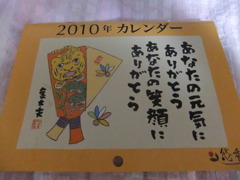 2010年 カレンダー
あなたの元気に
ありがとう
あなたの笑顔に
ありがとう